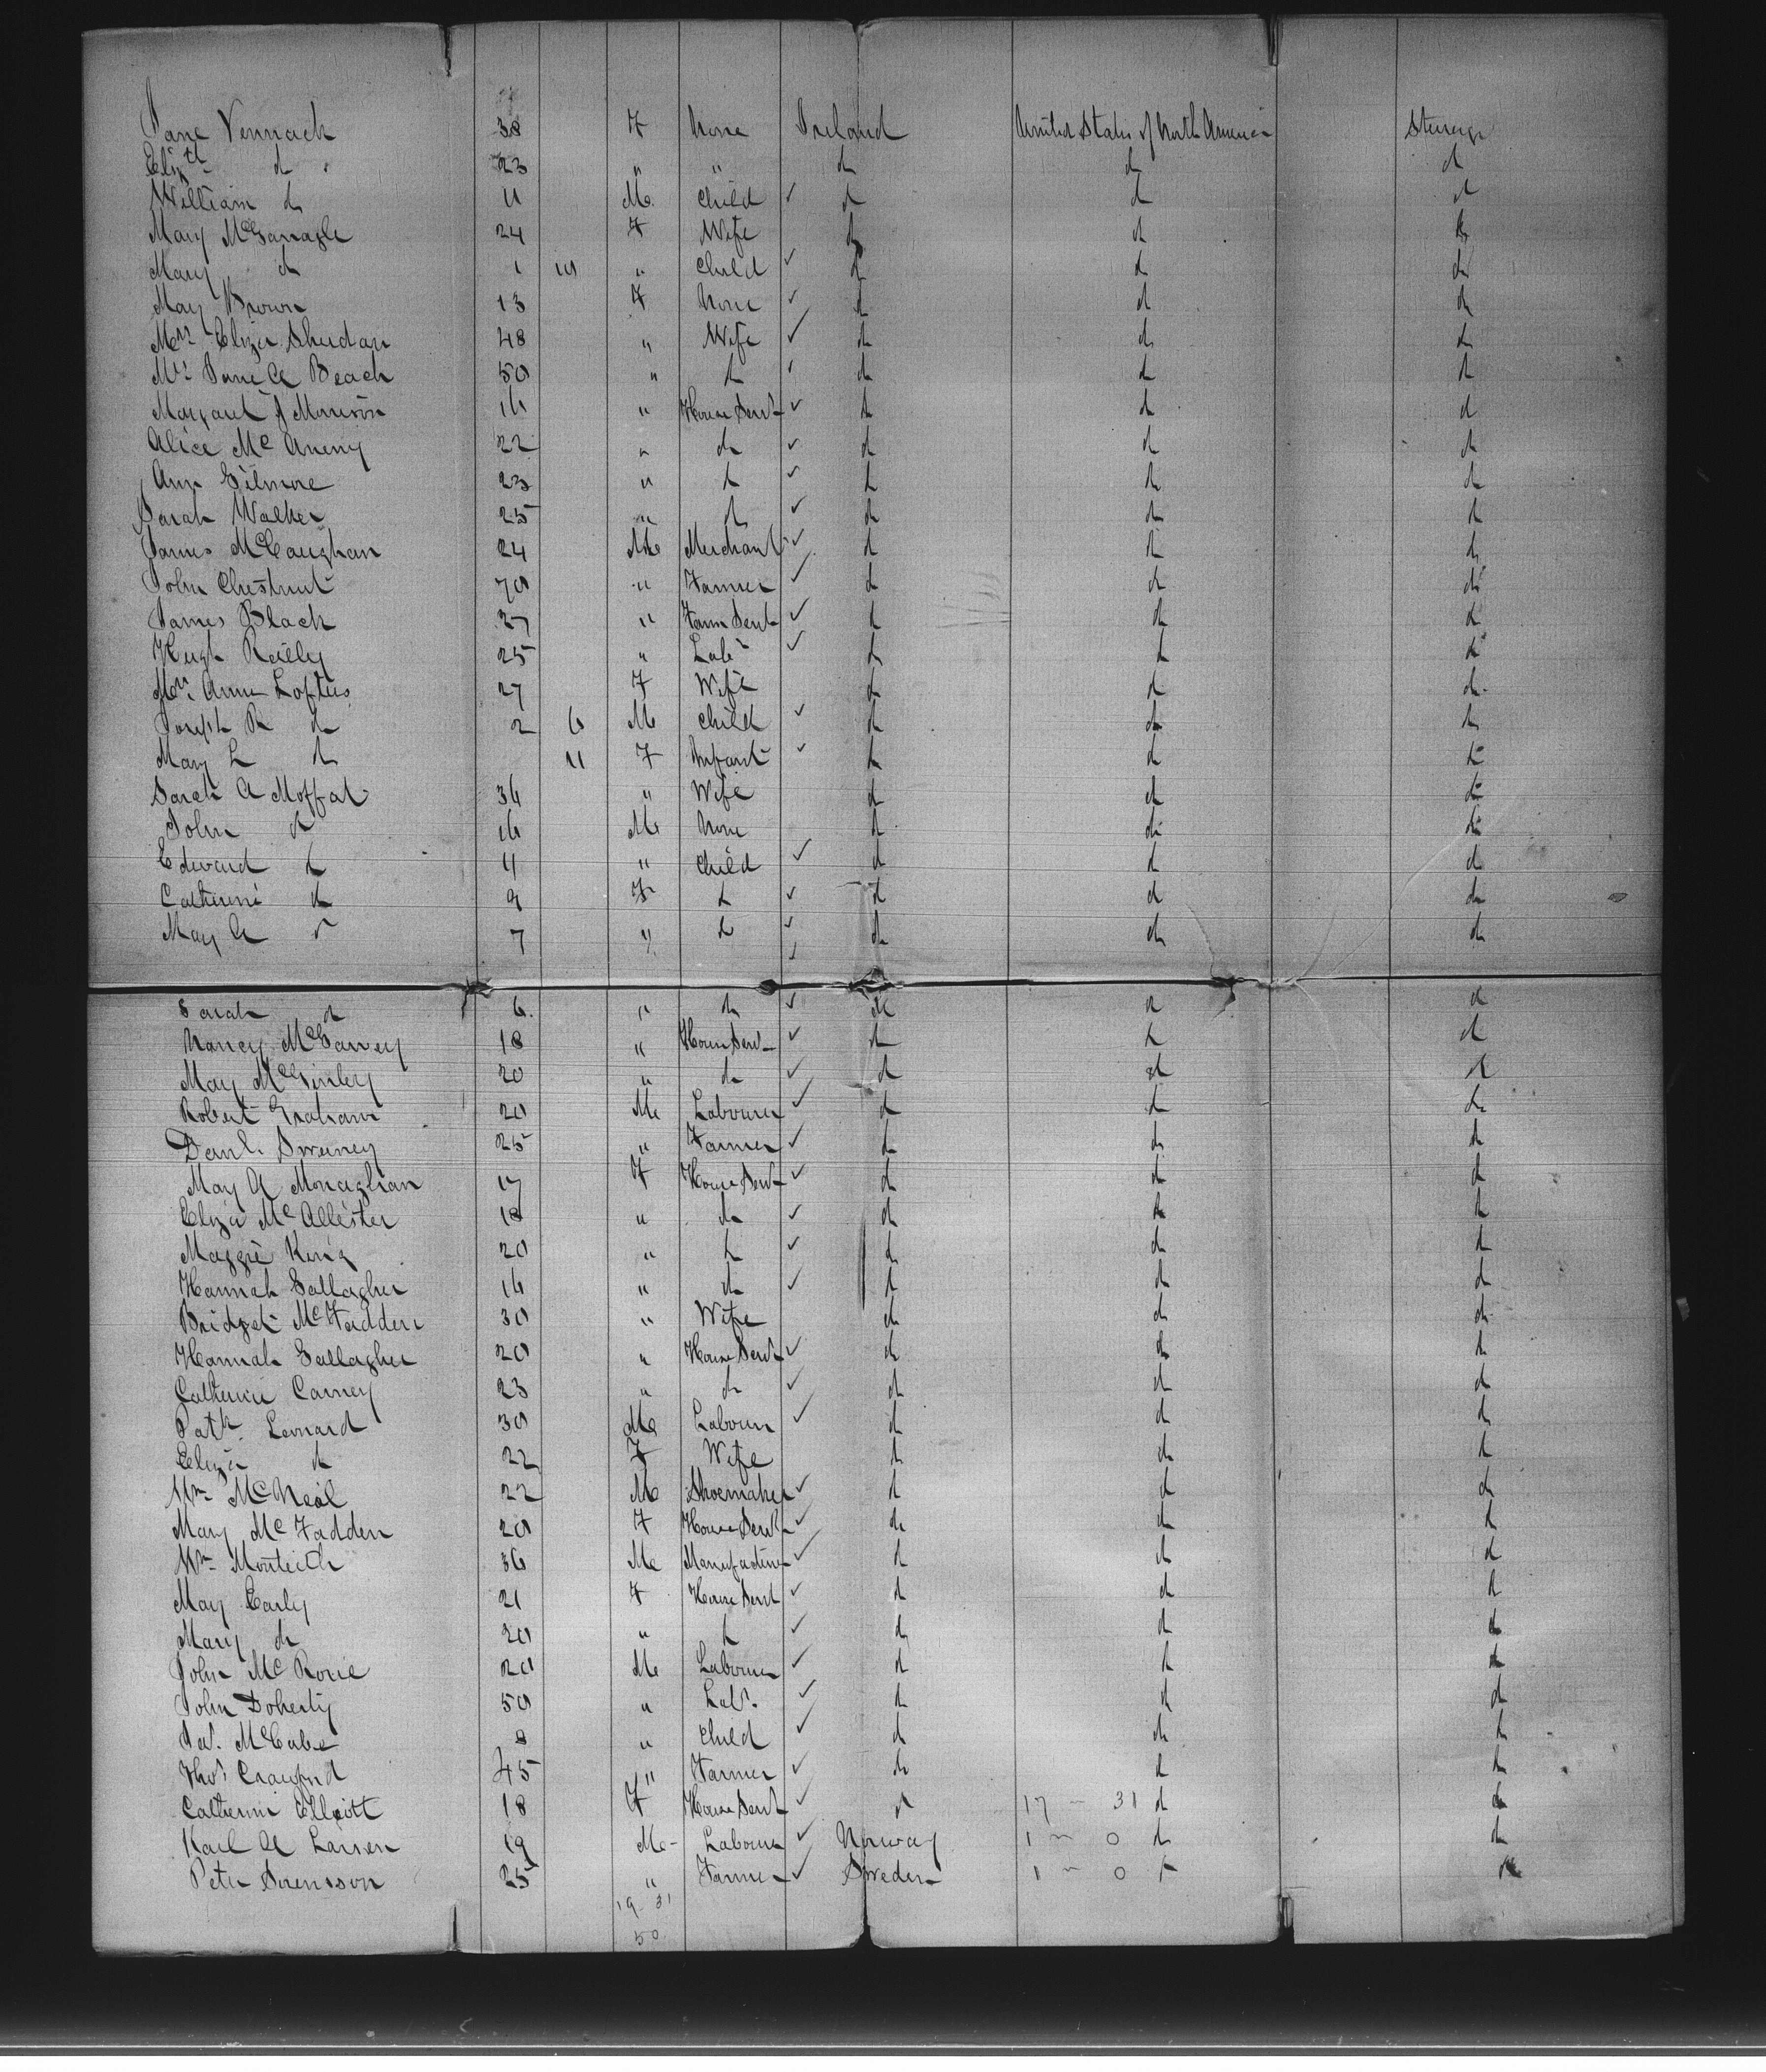 Jane Vennach 38 F None Ireland United States of North America Steerage
Elizth do 23 " " do do do
William do 11 Me Child ✓ do do do
Mary McGarragle 24 F Wife do do do
Mary do 1 10 " Child ✓ do do do
Mary Brown 13 F None ✓ do do do
Mrs Eliza Sheridan 48 " Wife ✓ do do do
Mrs Jane A Beach 50 " do ✓ do do do
Margaret J Morrison 16 " House Servt ✓ do do do
Alice Mc Aneny 22 " do ✓ do do do
Ann Gilmore 23 " do ✓ do do do
Sarah Walker 25 " do ✓ do do do
James McCaughan 24 Me Merchant ✓ do do do
John Chestnut 70 " Farmer ✓ do do do
James Black 27 " Farm Servt ✓ do do do
Hugh Reilly 25 " Labr ✓ do do do
Mrs Anne Loftus 27 F Wife do do do
Joseph R do 2 6 Me Child ✓ do do do
Mary L do 11 F Infant ✓ do do do
Sarah A Moffat 36 " Wife do do do
John do 16 Me None do do do
Edward do 11 " Child ✓ do do do
Catherine do 9 F do ✓ do do do
Mary A do 7 " do ✓ do do do
Sarah do 6 " do ✓ do do do
Nancy McGarvey 18 " House Servt ✓ do do do
Mary McGinley 20 " do ✓ do do do
Robert Graham 20 Me Labourer ✓ do do do
Danl. Sweeney 25 " Farmer ✓ do do do
Mary A Monaghan 17 F House Servt ✓ do do do
Eliza Mc Allester 18 " do ✓ do do do
Maggie King 20 " do ✓ do do do
Hannah Gallagher 16 " do ✓ do do do
Bridget McFadden 30 " Wife do do do
Hannah Gallagher 20 " House Servt ✓ do do do
Catherine Carney 23 " do ✓ do do do
Patk Leonard 30 Me Labourer ✓ do do do
Eliza do 22 F Wife do do do
Wm McNeal 22 Me Shoemaker ✓ do do do
Mary Mc Fadden 20 F House Servt ✓ do do do
Wm Monteith 36 Me Manufacturer ✓ do do do
Mary Early 21 F House Servt ✓ do do do
Mary do 20 " do ✓ do do do
John Mc Rorie 20 Me Labourer ✓ do do do
John Doherty 50 " Labr. ✓ do do do
McCabe 8 " Child ✓ do do do
Thos Crawford 45 " Farmer ✓ do do do
Catherine Elliott 18 F House Servt ✓ do 17 - 31 do do
Karl A Larsen 19 Me Labourer ✓ Norway 1 - 0 do do
Peter Sorensson 25 " Farmer ✓ Sweden 1 - 0 do do
19 31
50